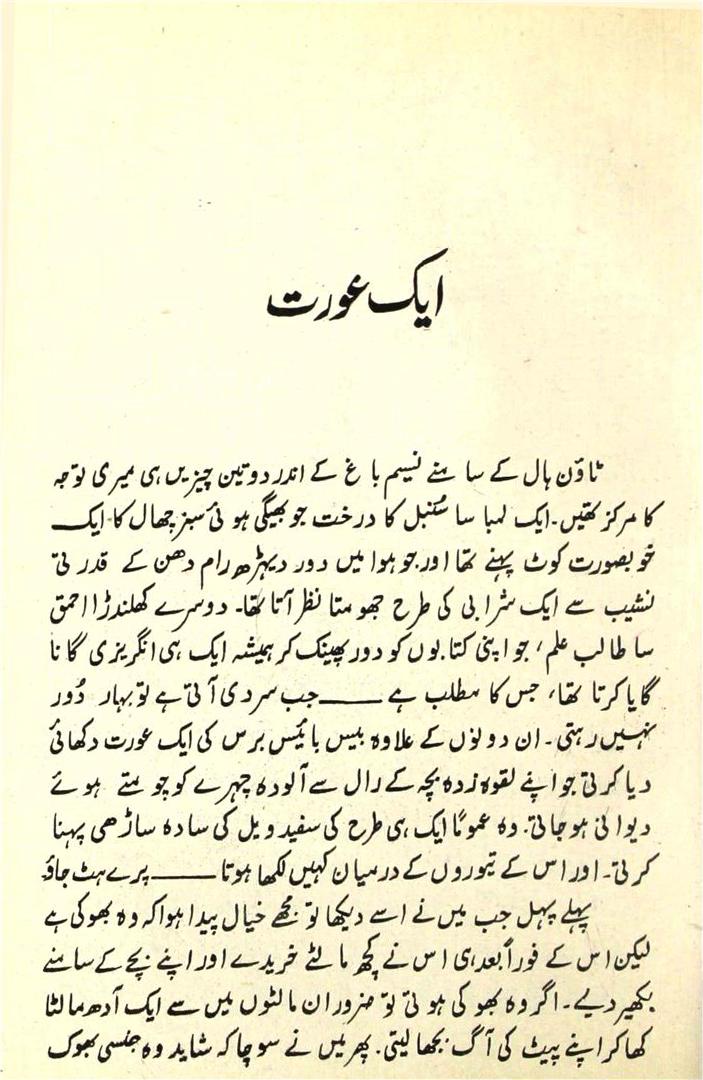 ایک عورت
ٹاؤن ہال کے سامنے نسیم باغ کے اندر دو تین چیزیں ہی میری توجہ
کا مرکز تھیں۔ ایک لمبا سا سُنبل کا درخت جو بھیگی ہوئی سبز چھال کا ایک
خوبصورت کوٹ پہنے تھا اور جو ہوا میں دور دیہڑھ رام دھن کے قدرتی
نشیب سے ایک شرابی کی طرح جھومتا نظر آتا تھا۔ دوسرے کھلنڈرا احمق
سا طالب علم، جو اپنی کتابوں کو دور پھینک کر ہمیشہ ایک ہی انگریزی گانا
گایا کرتا تھا، جس کا مطلب ہے ——— جب سردی آتی ہے تو بہار دُور
نہیں رہتی۔ ان دونوں کے علاوہ بیس بائیس برس کی ایک عورت دکھائی
دیا کرتی جو اپنے لقوہ زدہ بچہ کے رال سے آلودہ چہرے کو چومتے ہوئے
دیوانی ہو جاتی۔ وہ عموماً ایک ہی طرح کی سفید ویل کی سادہ ساڑھی پہنا
کرتی۔ اور اس کے تیوروں کے درمیان کہیں لکھا ہوتا ——— پرے ہٹ جاؤ
پہلے پہل جب میں نے اسے دیکھا تو مجھے خیال پیدا ہوا کہ وہ بھوکی ہے
لیکن اس کے فوراً بعد ہی اس نے کچھ مالٹے خریدے اور اپنے بچے کے سامنے
بکھیر دیے۔ اگر وہ بھوکی ہوتی تو ضرور ان مالٹوں میں سے ایک آدھ مالٹا
کھا کر اپنے پیٹ کی آگ بجھا لیتی۔ پھر میں نے سوچا کہ شاید وہ جنسی بھوک